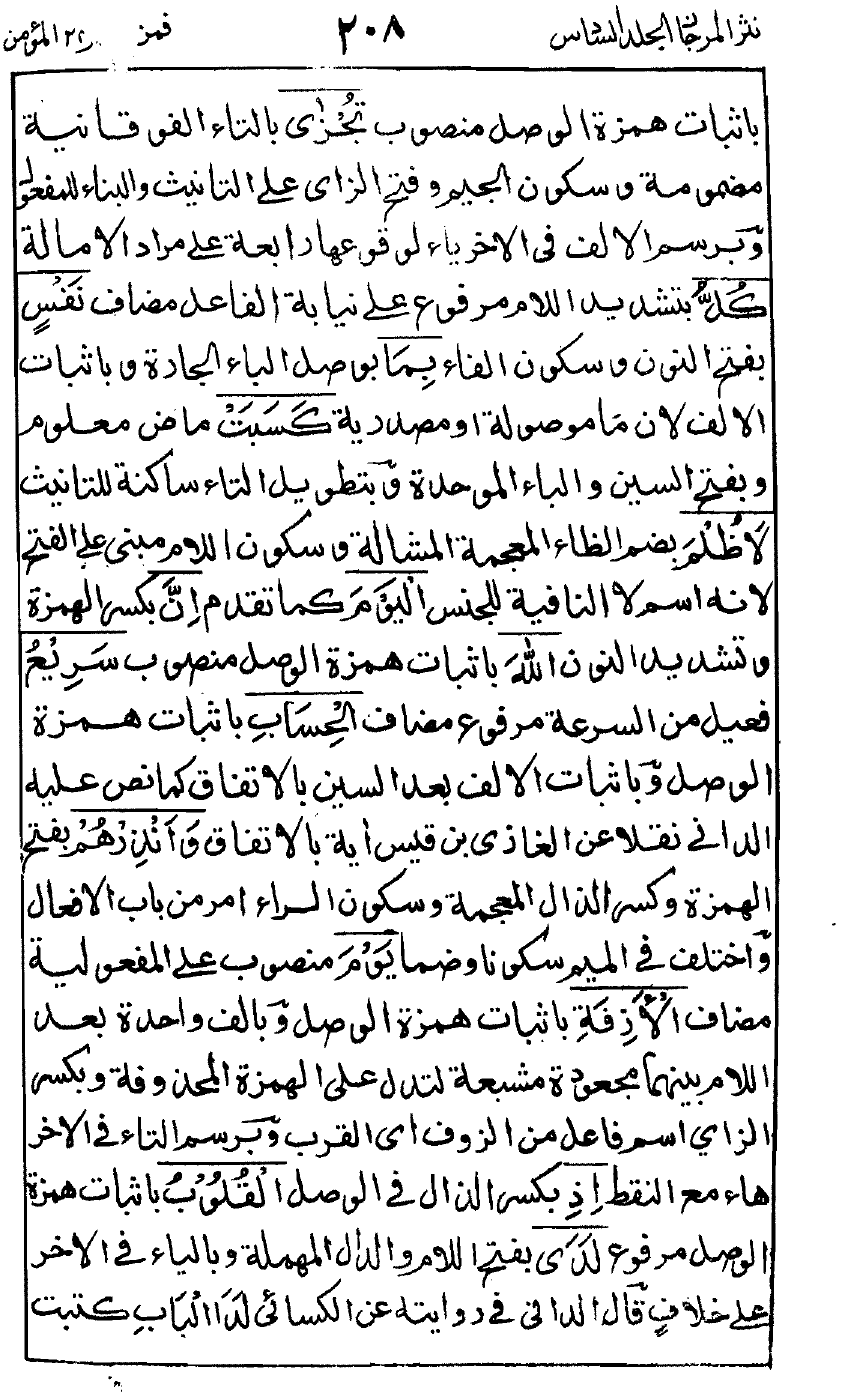 نثر المرجان الجلد السادس ٢٠٨ فمز المؤمن
باثبات همزة الوصل منصوب تُجْزٰى بالتاء الفوقانية
مضمومة وسكون الجيم وفتح الزاى على التانيث والبناء للمفعول
وبرسم الالف فى الاخر ياء لوقوعها رابعة على مراد الامالة
كُلُّ بتشديد اللام مرفوع على نيابة الفاعل مضاف نَفْسٍ
بفتح النون وسكون الفاء بِمَا بوصل الباء الجارة وباثبات
الالف لان مَا موصولة او مصدرية كَسَبَتْ ماض معلوم
وبفتح السين والباء الموحدة وبتطويل التاء ساكنة للتانيث
لَا ظُلْمَ بضم الظاء المعجمة المشالة وسكون اللام مبنى على الفتح
لانه اسم لا النافية للجنس الْيَوْمَ كما تقدم اِنَّ بكسر الهمزة
وتشديد النون اللهَ باثبات همزة الوصل منصوب سَرِيْعُ
فعيل من السرعة مرفوع مضاف الْحِسَابِ باثبات همزة
الوصل وباثبات الالف بعد السين بالاتفاق كما نص عليه
الدانى نقلا عن الغازى بن قيس اية بالاتفاق وَاَنْذِرْهُمْ بفتح
الهمزة وكسر الذال المعجمة وسكون الراء امر من باب الافعال
واختلف فى الميم سكونا وضما يَوْمَ منصوب على المفعولية
مضاف الْاٰزِفَةِ باثبات همزة الوصل وبالف واحدة بعد
اللام بينهما مجعودة مشبعة لتدل على الهمزة المحذوفة وبكسر
الزاي اسم فاعل من الزوف اى القرب وبرسم التاء فى الاخر
هاء مع النقط اِذِ بكسر الذال فى الوصل الْقُلُوْبُ باثبات همزة
الوصل مرفوع لَدَى بفتح اللام والدال المهملة وبالياء فى الاخر
على خلاف قال الدانى فى روايته عن الكسائى لَدَا الْبَابِ كتبت